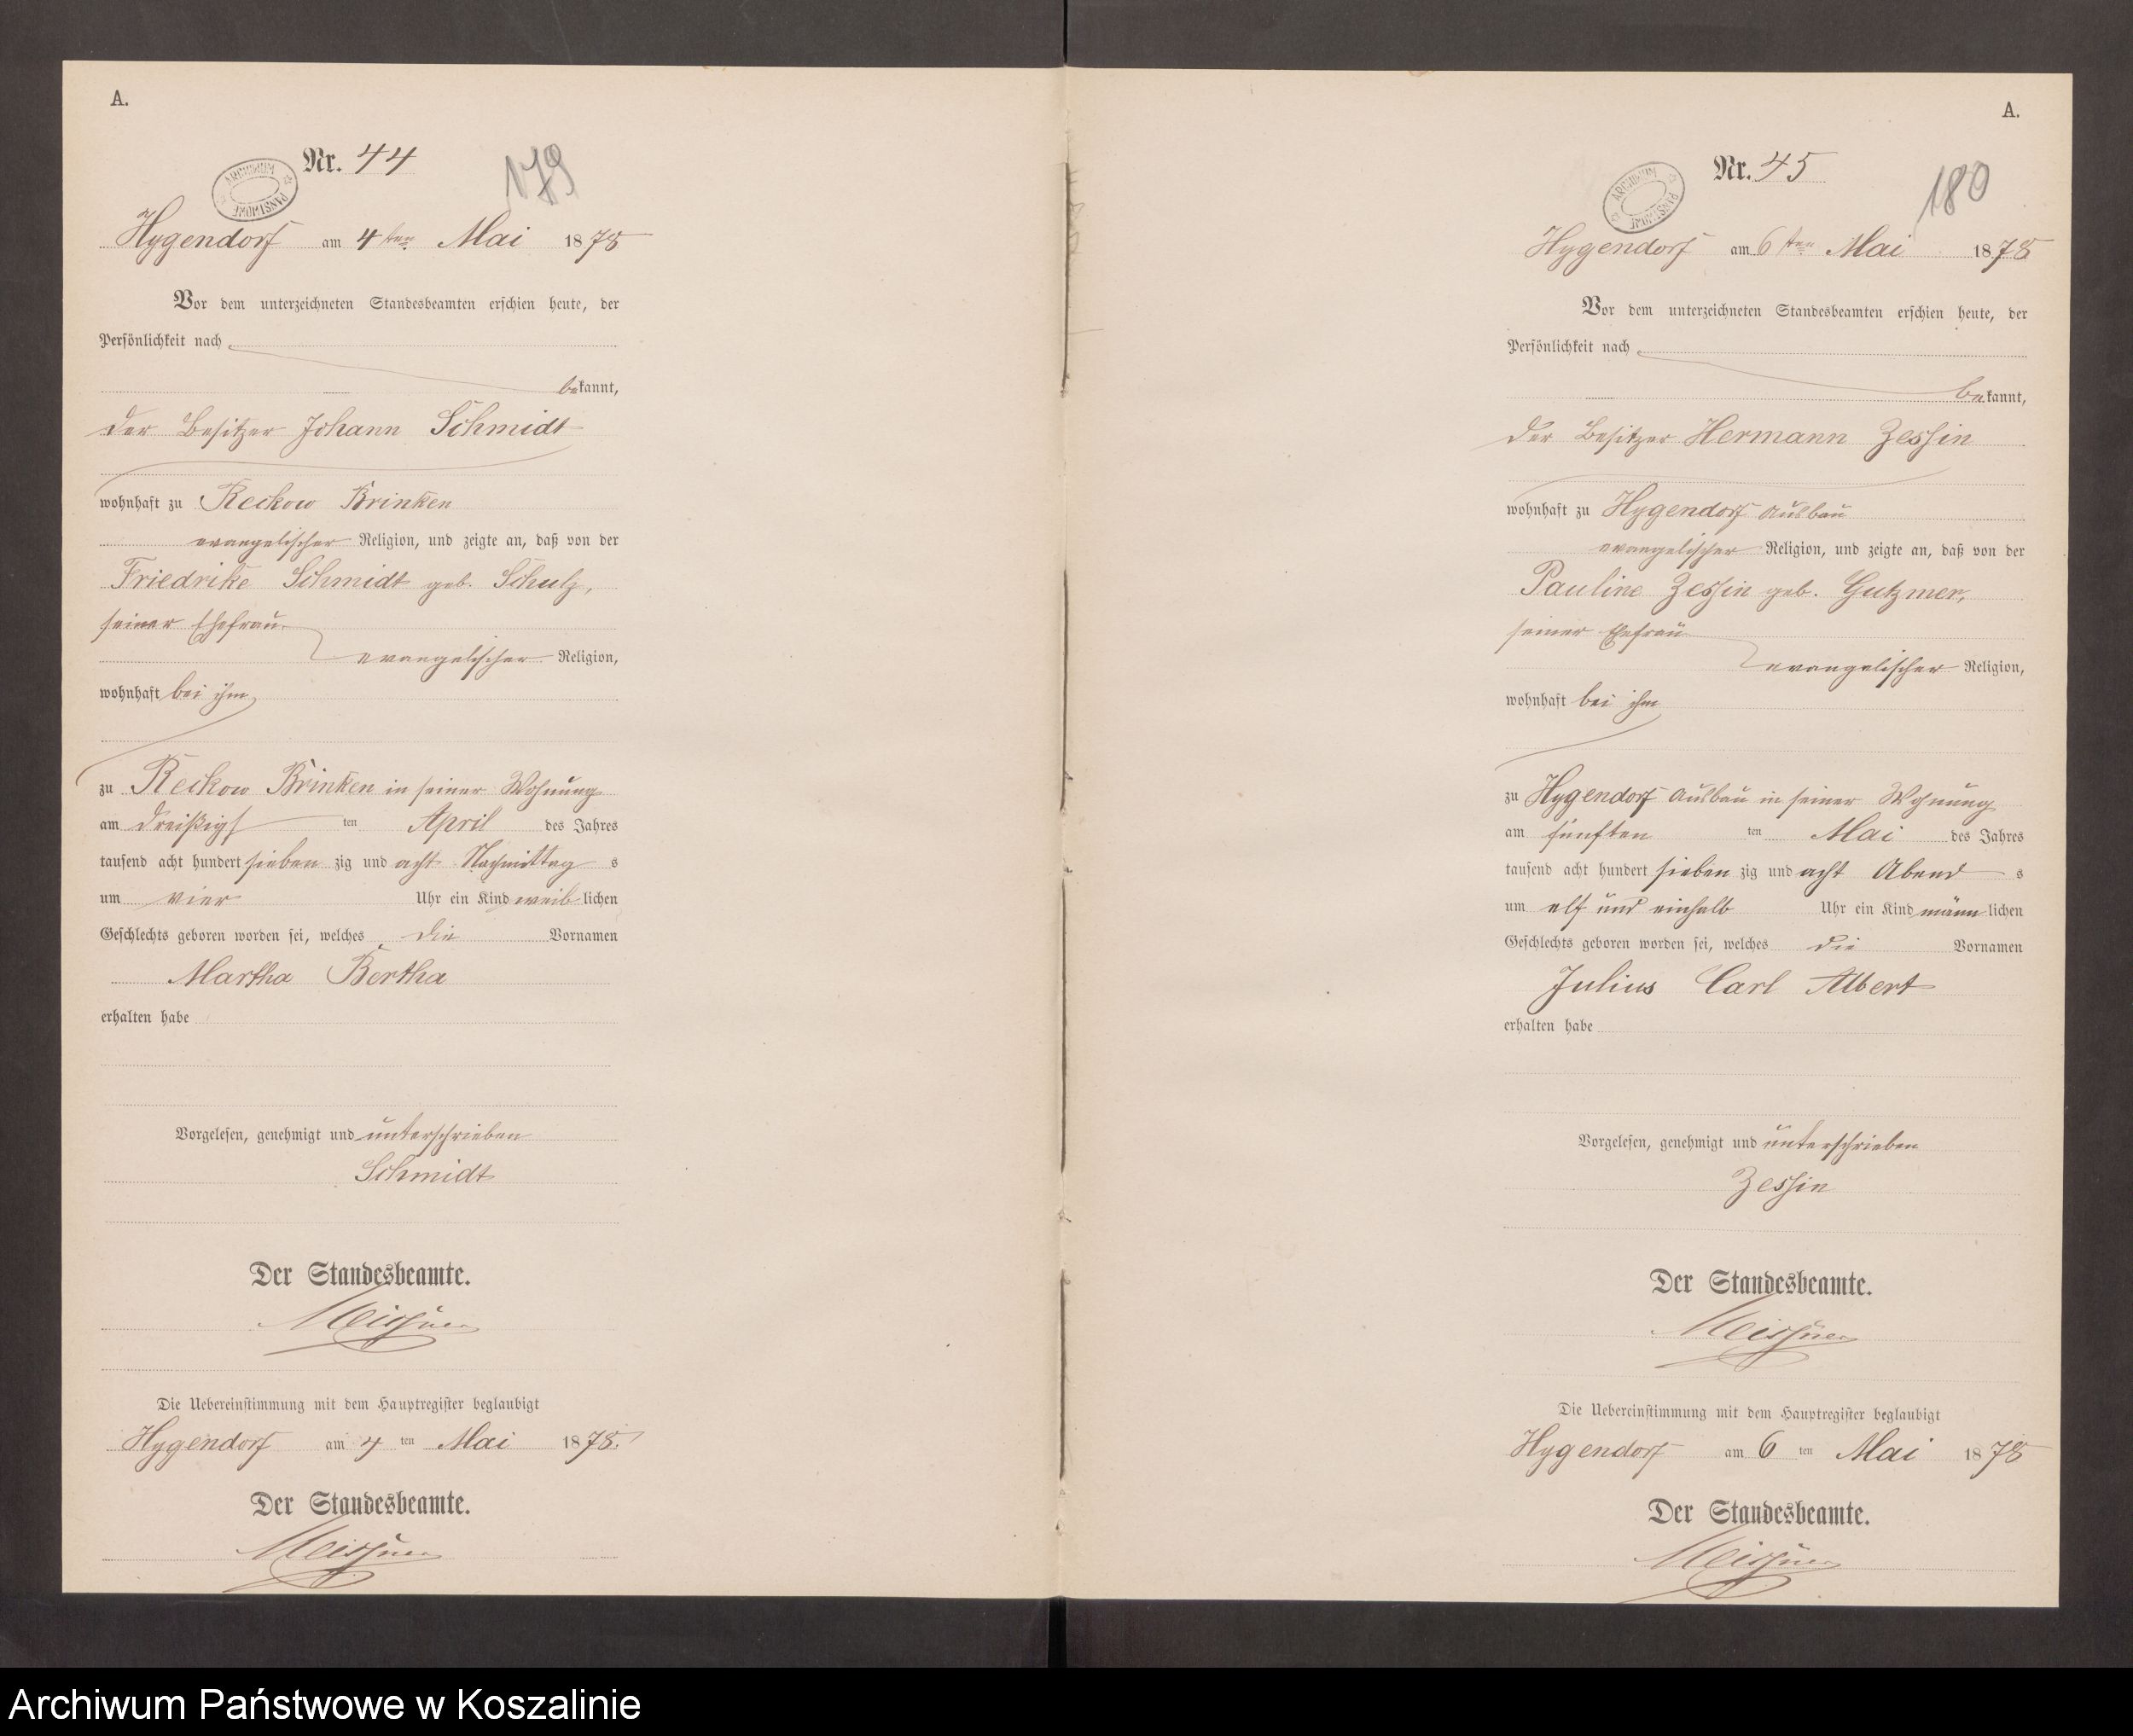 A.
Nr. 44
179
ARCHIWUM PAŃSTWOWE
Hygendorf am 4ten Mai 1878
Vor dem unterzeichneten Standesbeamten erschien heute, der
Persönlichkeit nach
bekannt,
der Besitzer Johann Schmidt
wohnhaft zu Reckow Brinken
evangelischer Religion, und zeigte an, daß von der
Friedrike Schmidt geb. Schulz,
seiner Ehefrau
evangelischer Religion,
wohnhaft bei ihm
zu Reckow Brinken in seiner Wohnung
am dreißigs ten April des Jahres
tausend acht hundert sieben zig und acht Nachmittag s
um vier Uhr ein Kind weib lichen
Geschlechts geboren worden sei, welches die Vornamen
Martha Bertha
erhalten habe
Vorgelesen, genehmigt und unterschrieben
Schmidt
Der Standesbeamte.
Meissner
Die Uebereinstimmung mit dem Hauptregister beglaubigt
Hygendorf am 4 ten Mai 1878.
Der Standesbeamte.
Meissner
A.
Nr. 45
180
ARCHIWUM PAŃSTWOWE
Hygendorf am 6ten Mai 1878
Vor dem unterzeichneten Standesbeamten erschien heute, der
Persönlichkeit nach
bekannt,
der Besitzer Hermann Zessin
wohnhaft zu Hygendorf Ausbau
evangelischer Religion, und zeigte an, daß von der
Pauline Zessin geb. Gutzmer,
seiner Ehefrau
evangelischer Religion,
wohnhaft bei ihm
zu Hygendorf Ausbau in seiner Wohnung
am fünften ten Mai des Jahres
tausend acht hundert sieben zig und acht Abend s
um elf und einhalb Uhr ein Kind männ lichen
Geschlechts geboren worden sei, welches die Vornamen
Julius Carl Albert
erhalten habe
Vorgelesen, genehmigt und unterschrieben
Zessin
Der Standesbeamte.
Meissner
Die Uebereinstimmung mit dem Hauptregister beglaubigt
Hygendorf am 6 ten Mai 1878
Der Standesbeamte.
Meissner
Archiwum Państwowe w Koszalinie